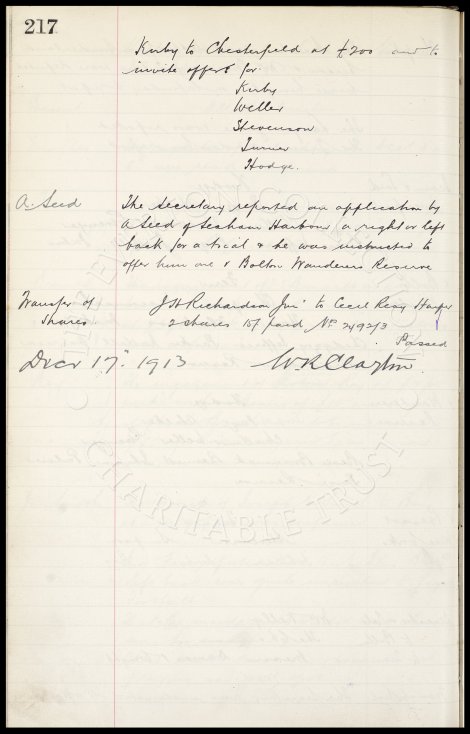 217
Kirby to Chesterfield at £200 and to
invite offers for
Kirby
Weller
Stevenson
Turner
Hodge.
A. Seed
The Secretary reported an application by
A Seed of Seaham Harbour, a right or left
back for a trial & he was instructed to
offer him one v Bolton Wanderers Reserve
Transfer of
Shares
J H Richardson Junr to Cecil Harper
2 shares 15/ paid Nos 2492/3
Passed
Decr 17th 1913
W.R. Clayton.
CHARITABLE TRUST